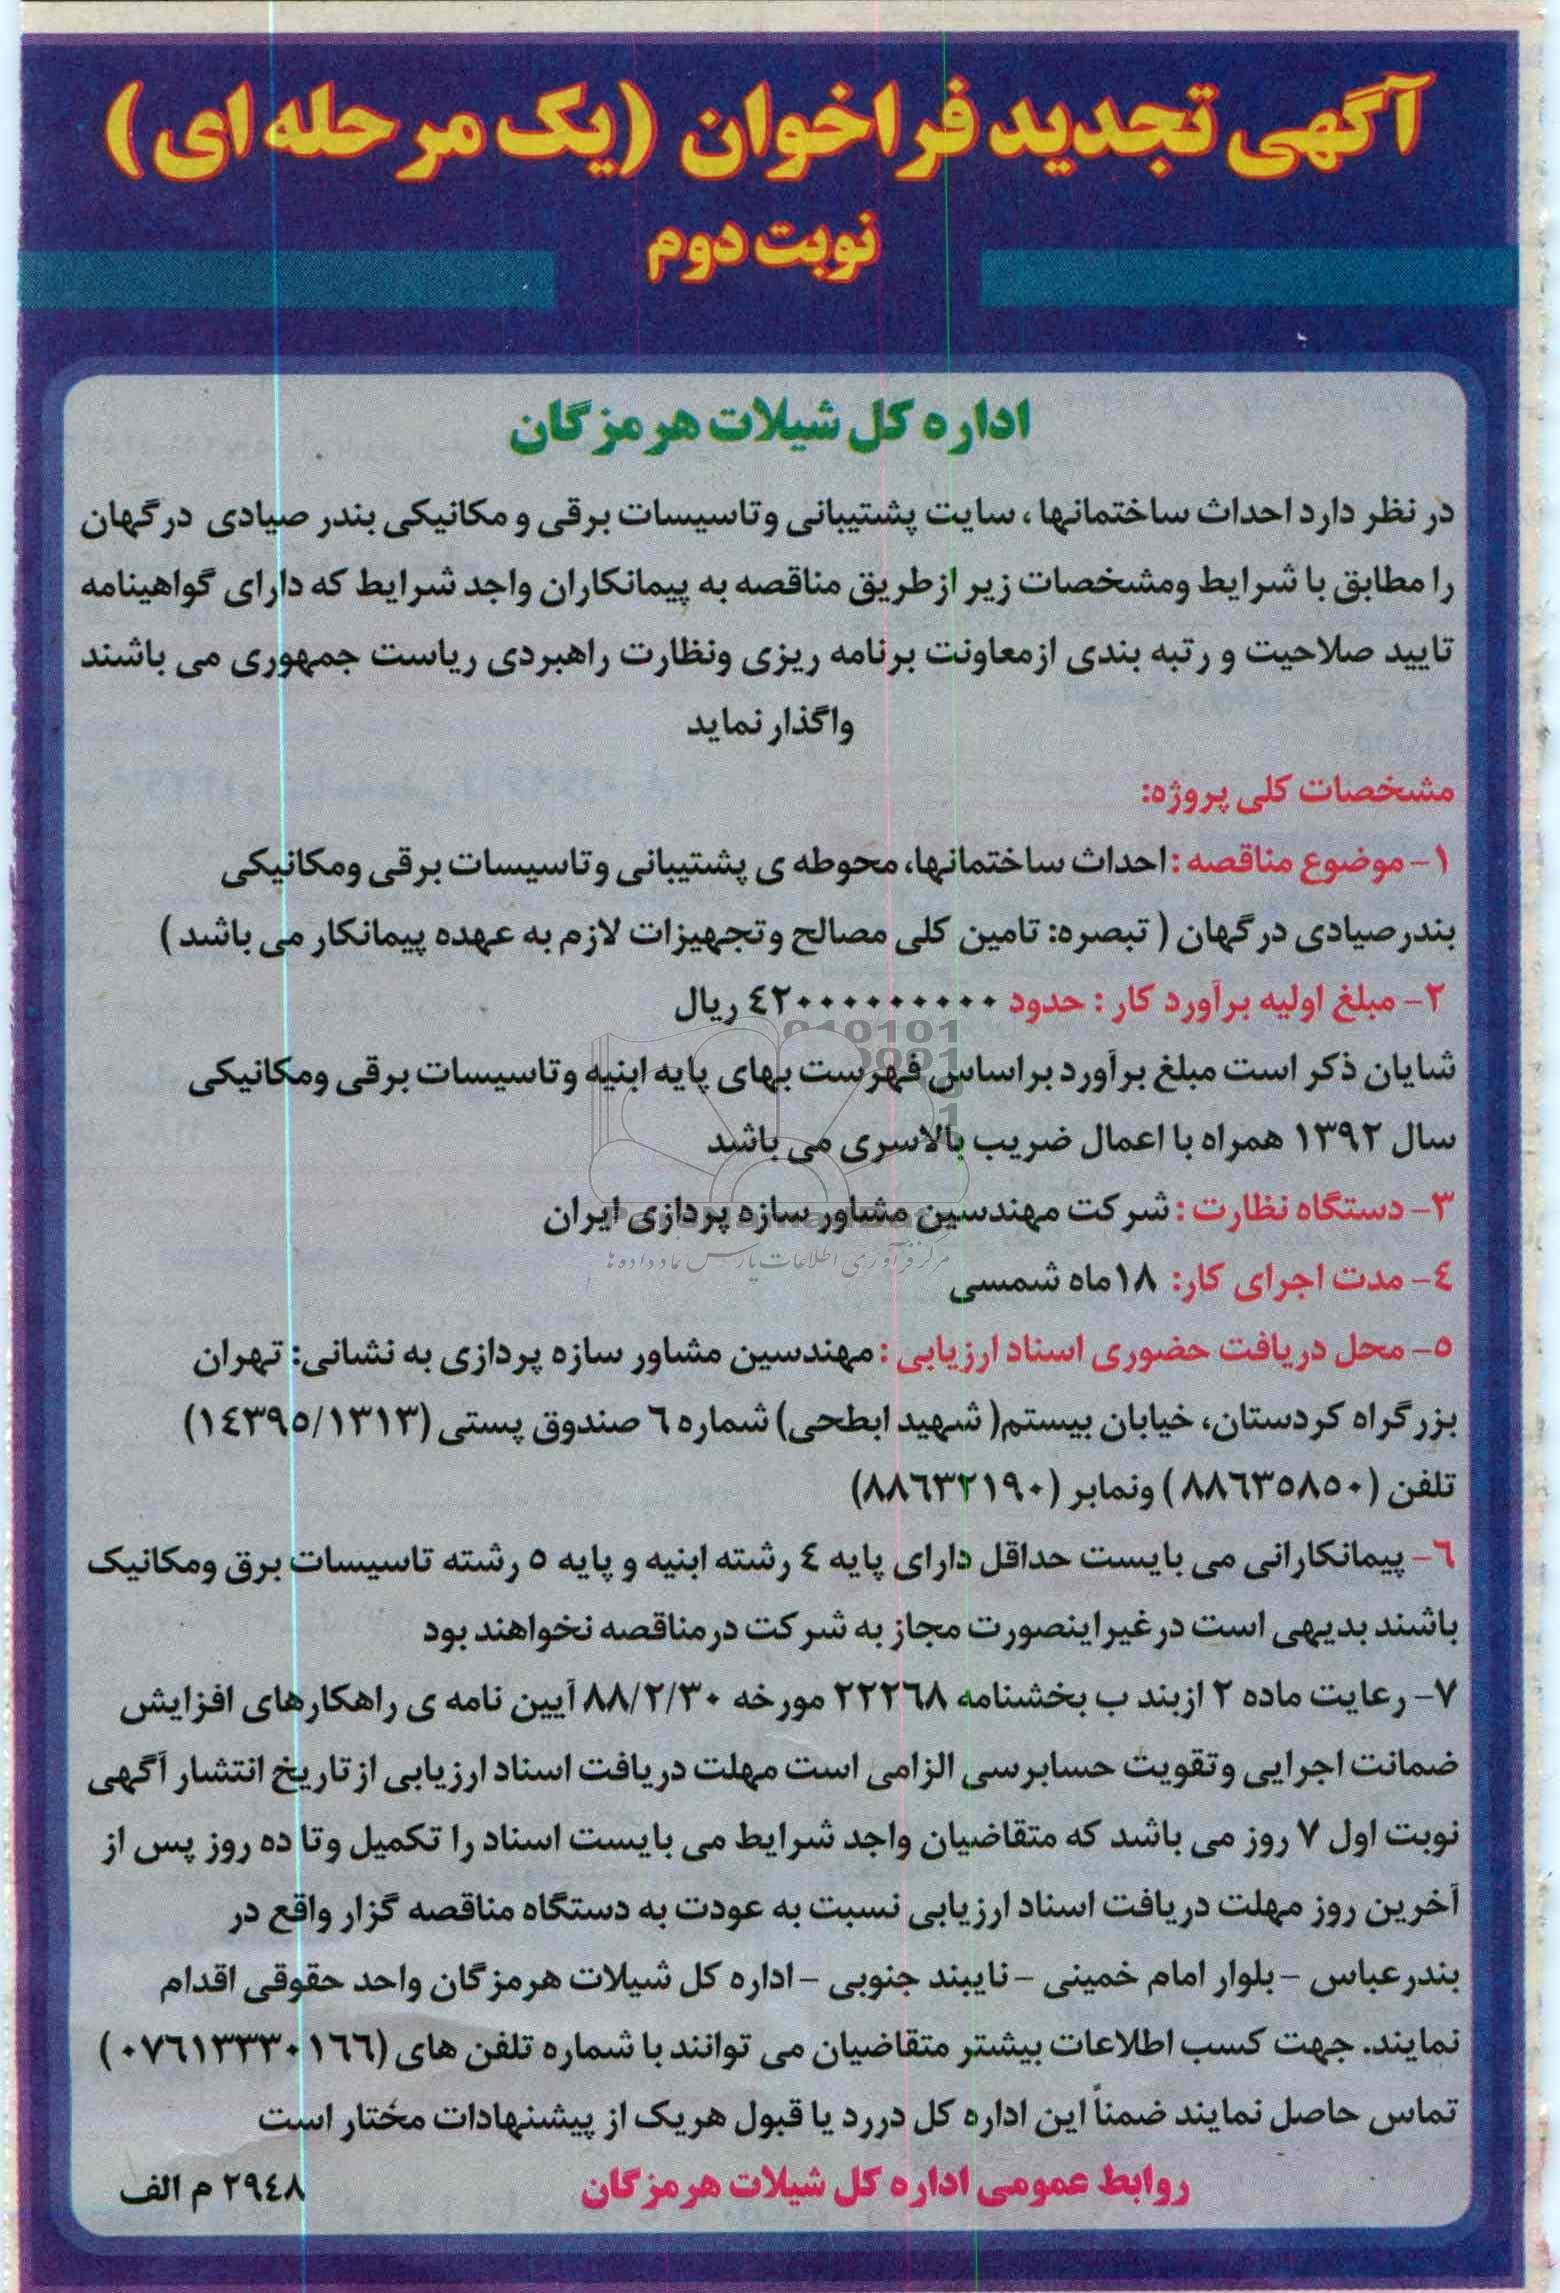 آگهی تجدید فراخوان (یک مرحله ای)
نوبت دوم
اداره کل شیلات هرمزگان
در نظر دارد احداث ساختمانها، سایت پشتیبانی وتاسیسات برقی و مکانیکی بندر صیادی درگهان
را مطابق با شرایط ومشخصات زیر ازطریق مناقصه به پیمانکاران واجد شرایط که دارای گواهینامه
تایید صلاحیت و رتبه بندی ازمعاونت برنامه ریزی ونظارت راهبردی ریاست جمهوری می باشند
واگذار نماید
مشخصات کلی پروژه:
۱- موضوع مناقصه : احداث ساختمانها، محوطه ی پشتیبانی وتاسیسات برقی ومکانیکی
بندرصیادی درگهان ( تبصره: تامین کلی مصالح وتجهیزات لازم به عهده پیمانکار می باشد )
۲- مبلغ اولیه برآورد کار : حدود ۴۲۰۰۰۰۰۰۰۰۰۰ ریال
شایان ذکر است مبلغ برآورد براساس فهرست بهای پایه ابنیه وتاسیسات برقی ومکانیکی
سال ۱۳۹۲ همراه با اعمال ضریب بالاسری می باشد
۳- دستگاه نظارت : شرکت مهندسین مشاور سازه پردازی ایران
مرکز فرآوری اطلاعات پارس نماد داده ها
۴- مدت اجرای کار: ۱۸ماه شمسی
۵- محل دریافت حضوری اسناد ارزیابی : مهندسین مشاور سازه پردازی به نشانی: تهران
بزرگراه کردستان، خیابان بیستم( شهید ابطحی) شماره ۶ صندوق پستی (۱۴۳۹۵/۱۳۱۳)
تلفن (۸۸۶۳۵۸۵۰ ) ونمابر (۸۸۶۳۲۱۹۰)
۶- پیمانکارانی می بایست حداقل دارای پایه ۴ رشته ابنیه و پایه ۵ رشته تاسیسات برق ومکانیک
باشند بدیهی است درغیراینصورت مجاز به شرکت درمناقصه نخواهند بود
۷- رعایت ماده ۲ ازبند ب بخشنامه ۲۲۲۶۸ مورخه ۸۸/۲/۳۰ آیین نامه ی راهکارهای افزایش
ضمانت اجرایی وتقویت حسابرسی الزامی است مهلت دریافت اسناد ارزیابی ازتاریخ انتشار آگهی
نوبت اول ۷ روز می باشد که متقاضیان واجد شرایط می بایست اسناد را تکمیل وتا ده روز پس از
آخرین روز مهلت دریافت اسناد ارزیابی نسبت به عودت به دستگاه مناقصه گزار واقع در
بندرعباس - بلوار امام خمینی - نایبند جنوبی - اداره کل شیلات هرمزگان واحد حقوقی اقدام
نمایند. جهت کسب اطلاعات بیشتر متقاضیان می توانند با شماره تلفن های (۰۷۶۱۳۳۳۰۱۶۶ )
تماس حاصل نمایند ضمناً این اداره کل دررد یا قبول هریک از پیشنهادات مختار است
روابط عمومی اداره کل شیلات هرمزگان
۲۹۴۸ م الف